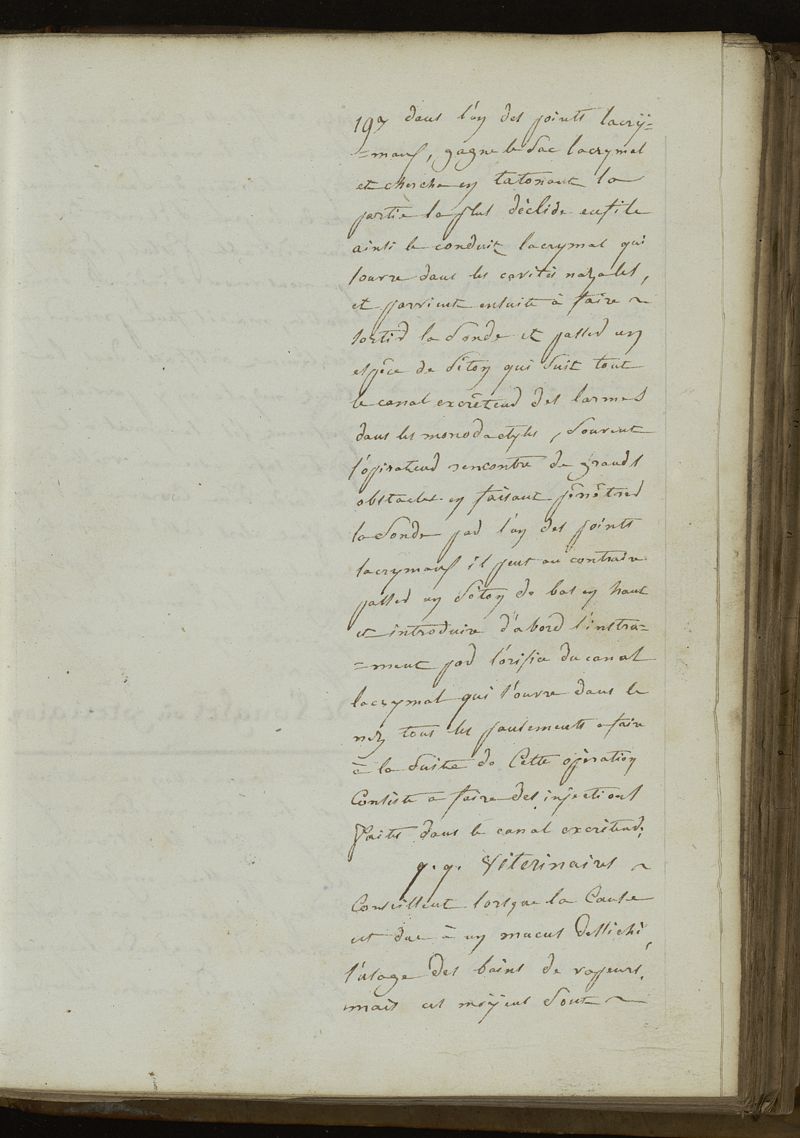 197 dans l'un des points lacry=
=maux, gagne le sac lacrymal
et cherche en tatonant la
partie la plus déclide enfile
ainsi le conduit lacrymal qui
souvre dans les cavités nazales,
et parvient ensuite à faire ~
sortir la sonde et passer un
espèce de séton qui suit tout
le canal excréteur des larmes
dans les monodactyles, souvent
l'opérateur rencontre de grands
obstacles en faisant pénétrer
la sonde par l'un des points
lacrymaux il peut au contraire
passer un séton de bas en haut
et introduire d'abord l'instru=
=ment par l'orifice du canal
lacrymal qui s'ouvre dans le
nez tous les pansements a faire
à la suite de cette opération
Consiste a faire des injections
faites dans le canal excréteur;
q. q. Véterinaires ~
Conseillent lorsque la Cause
est due à un mucus desséché,
l'usage des bains de vapeurs,
mais ces moÿens sont ~